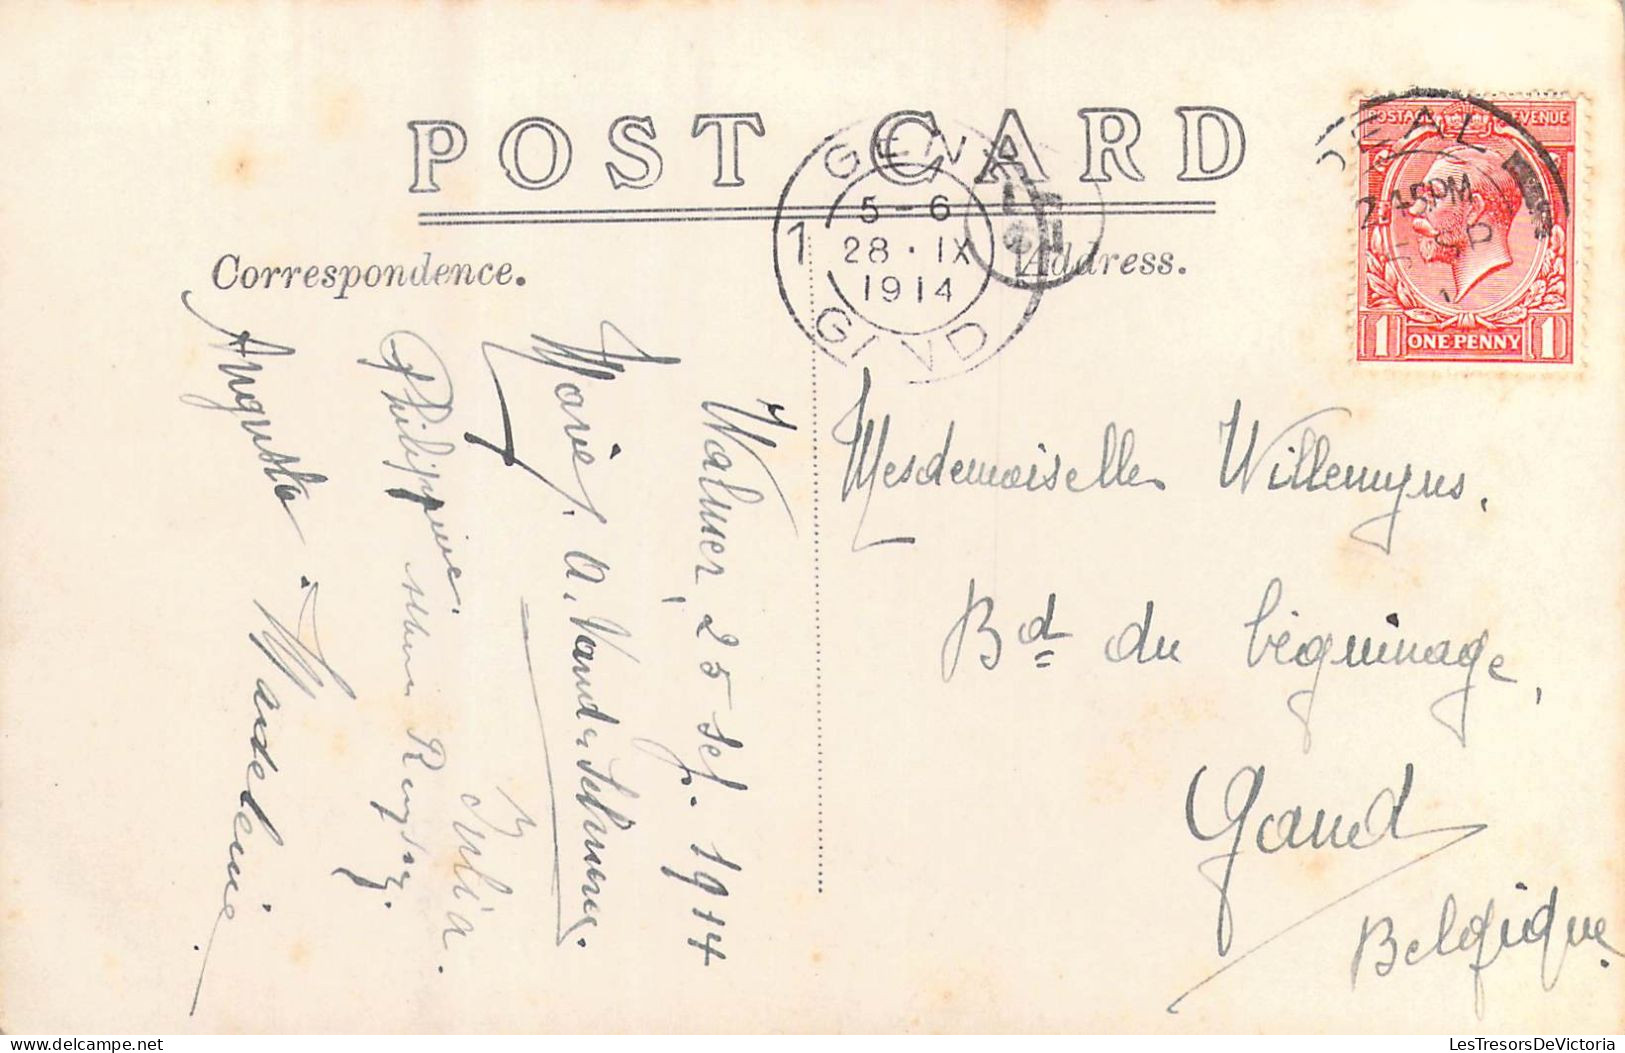 POST CARD
Correspondence.
Address.
GENT
1
5-6
28·IX
1914
GAND
DEAL
2.45PM
SP
POSTAGE REVENUE
1 ONE PENNY 1
Walmer, 25 Sef. 1914
Marie. A. Vand
Julia.
Philippine.
Augusta.
Madeleine.
Mesdemoiselles Willemyns.
Bd du béguinage,
Gand
Belgique.
LesTresorsDeVictoria